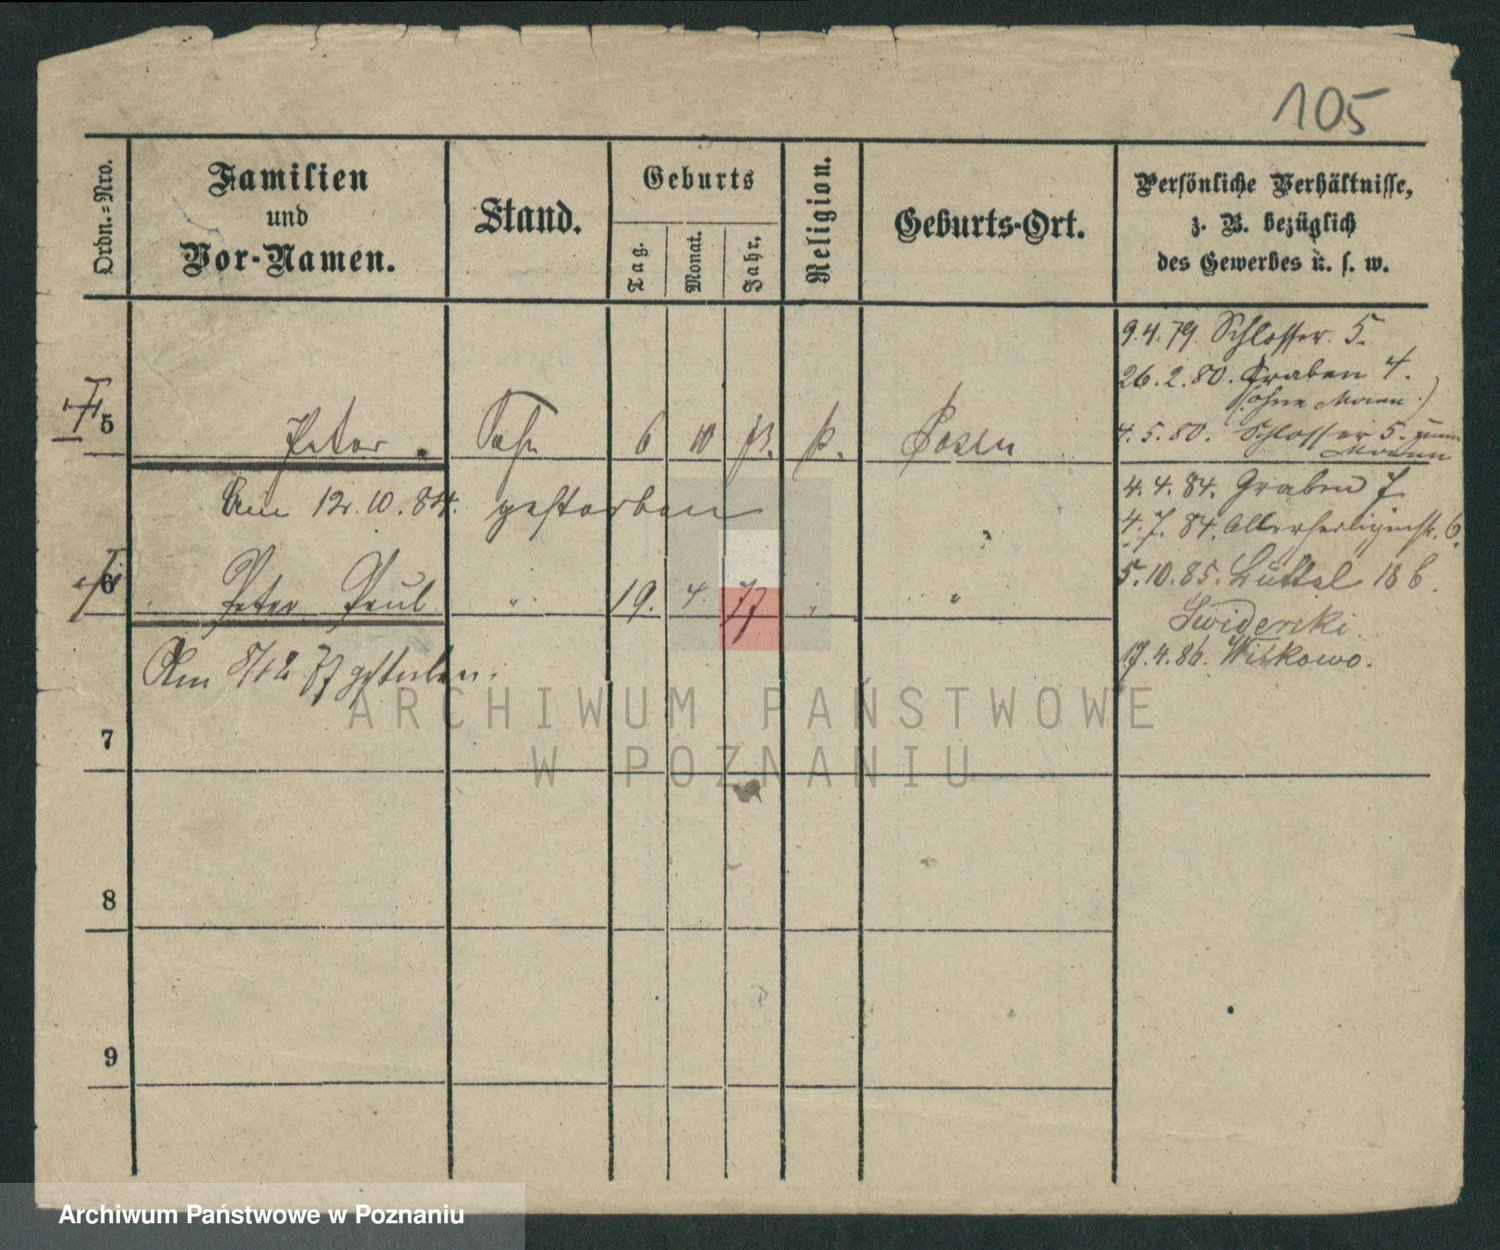 105
Ordn.=Nro.
Familien
und
Vor-Namen.
Stand.
Geburts
Tag.
Monat.
Jahr.
Religion.
Geburts-Ort.
Persönliche Verhältnisse,
z. B. bezüglich
des Gewerbes u. s. w.
9.4.79. Schlosser 5.
26.2.80. Graben 4.
(ohne Mann.)
4.5.80. Schlosser 5. zum
Mann
5 Peter Sohn 6 10 Posen
4.4.84. Graben 7
Am 12.10.84. gestorben
4.7.84. Allerheiligenstr. 6.
6 Peter Paul " 19. 4. 77 " "
5.10.85. Lüttal 18b.
Swiderski
17.4.86. Witkowo.
Am 8/12 77 gestorben.
ARCHIWUM PAŃSTWOWE
W POZNANIU
7
8
9
Archiwum Państwowe w Poznaniu